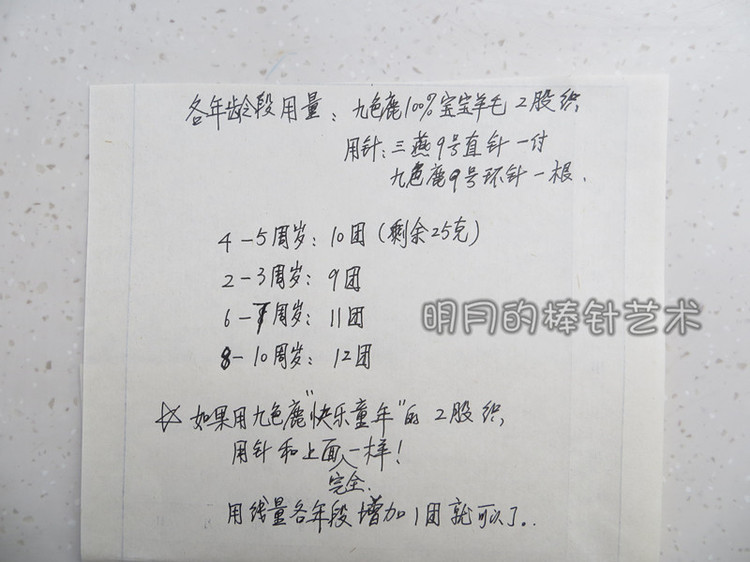 各年龄段用量：九色鹿100%宝宝羊毛 2股织，
用针：三燕9号直针一付
九色鹿9号环针一根．
4－5周岁：10团（剩余25克）
2－3周岁：9团
6－7周岁：11团
明月的棒针艺术
8－10周岁：12团
☆ 如果用九色鹿"快乐童年"的 2股织，
用针和上面一样！
完全．
用线量各年段增加1团就可以了．．